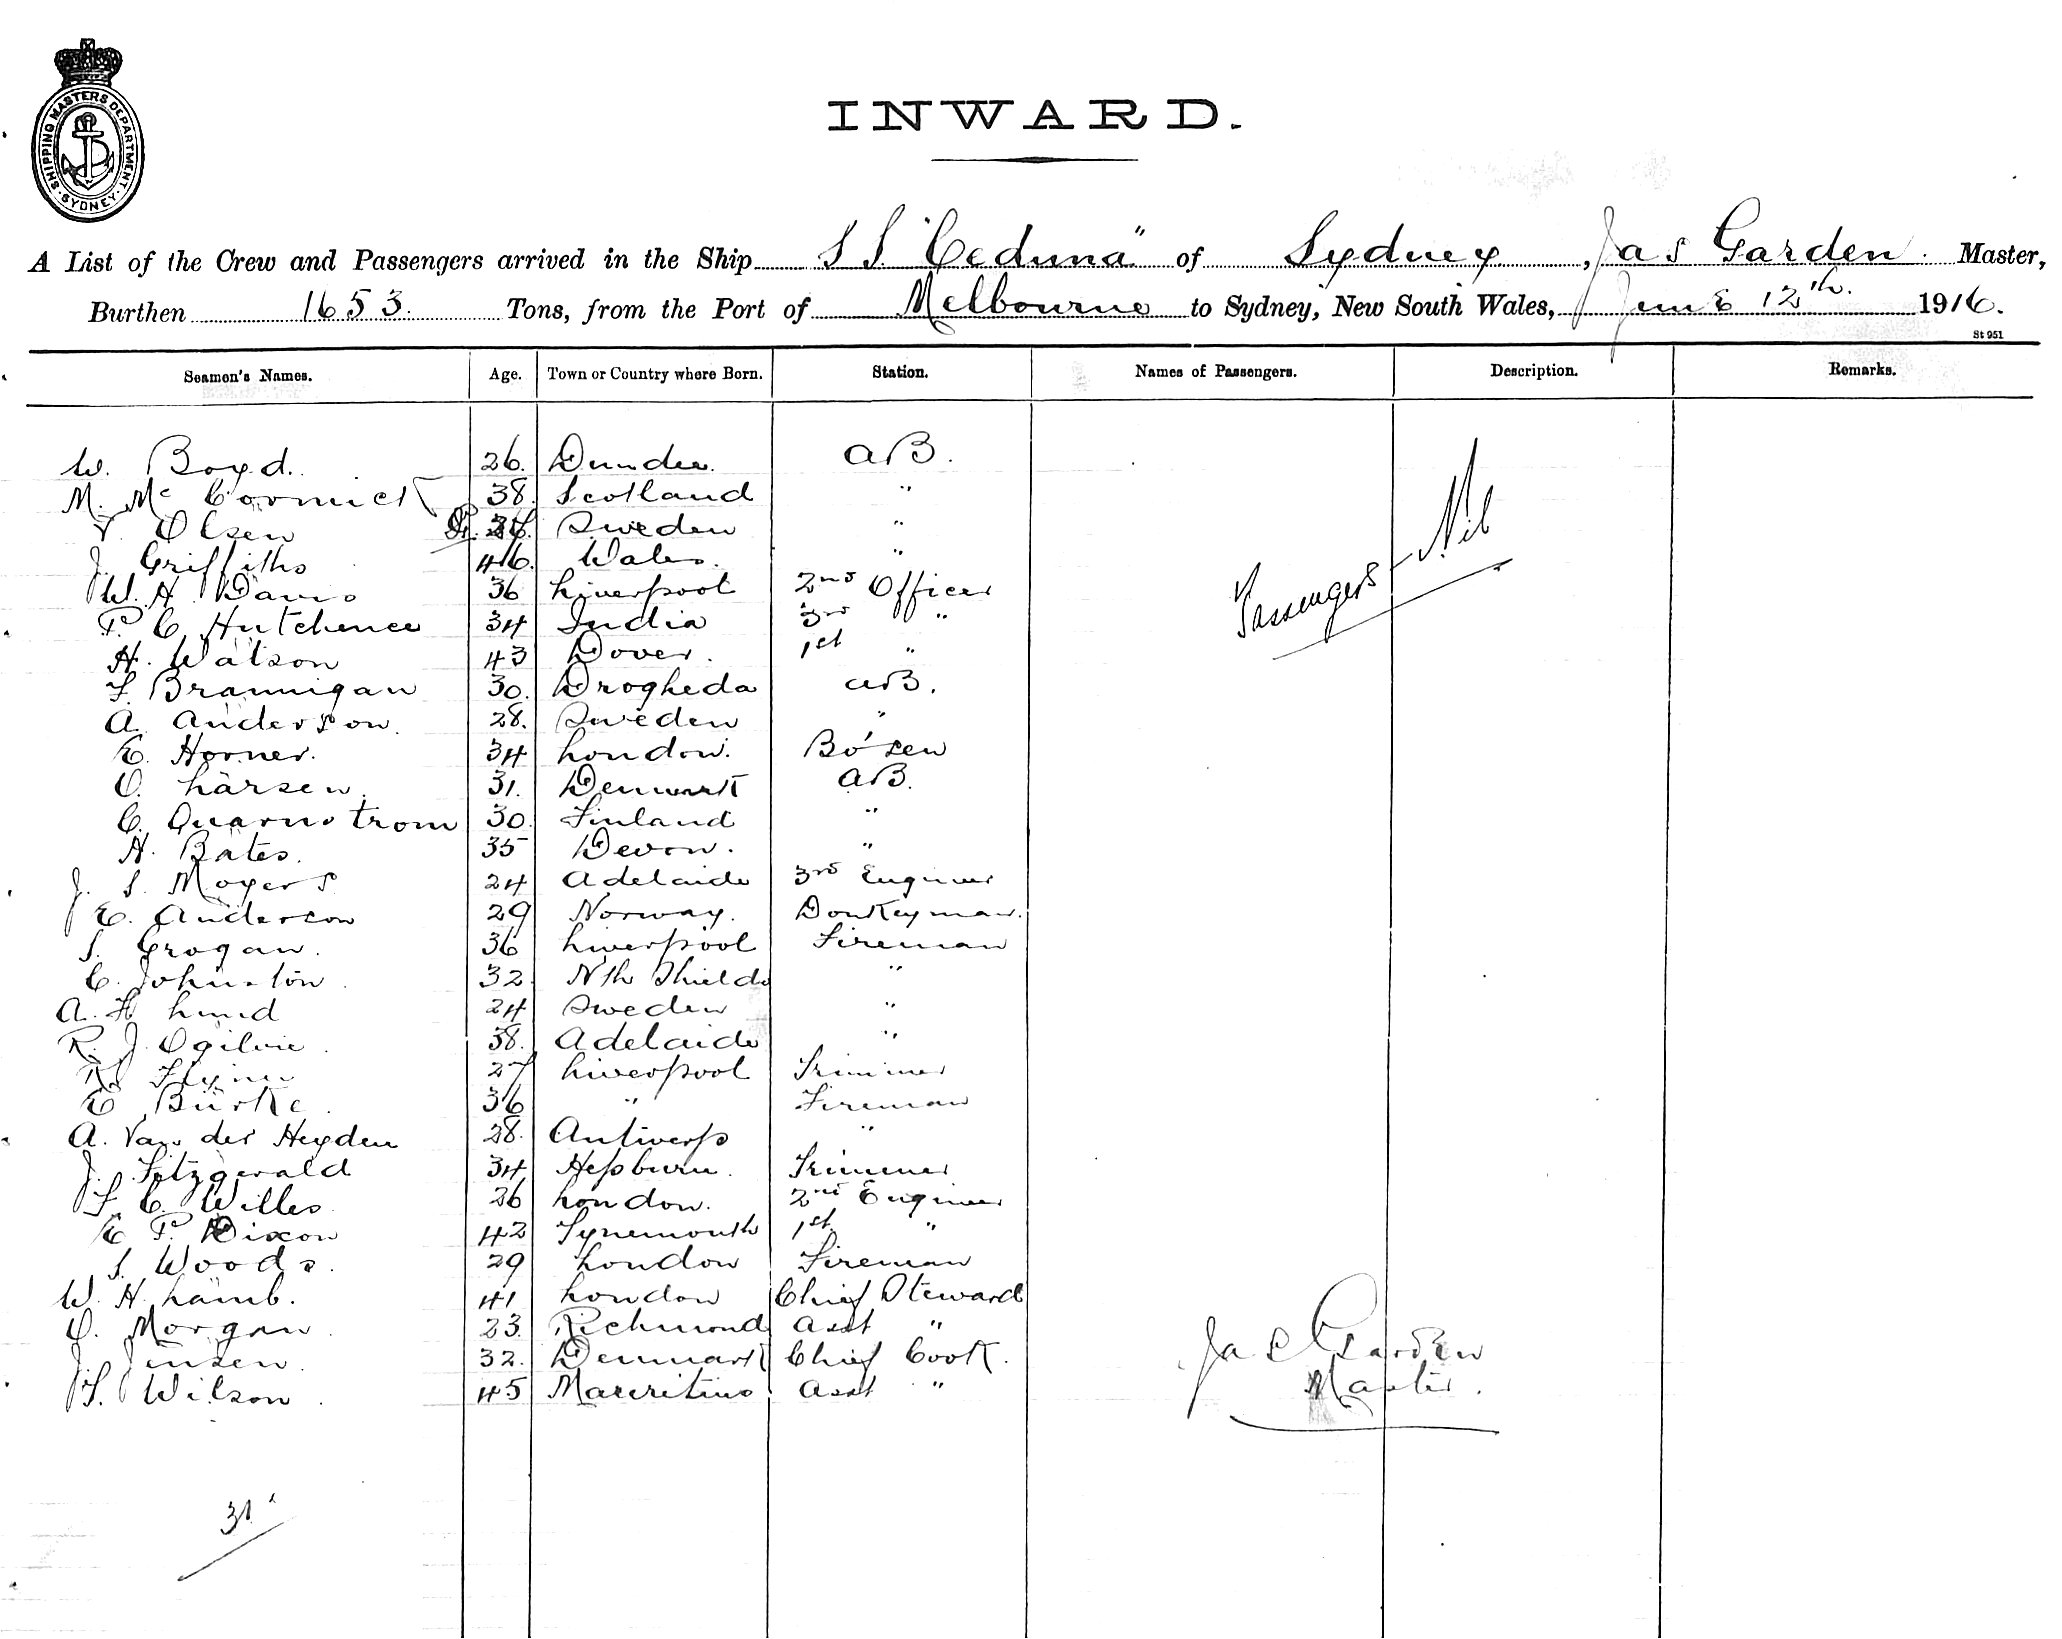 SHIPPING MASTERS DEPARTMENT · SYDNEY ·
INWARD.
A List of the Crew and Passengers arrived in the Ship S S. "Ceduna" of Sydney, Jas Garden. Master,
Burthen 1653. Tons, from the Port of Melbourne to Sydney, New South Wales, June 12th. 1916.
St 951
Seamen's Names. Age. Town or Country where Born. Station. Names of Passengers. Description. Remarks.
W. Boyd. 26. Dundee. AB.
M. McCormick 38. Scotland "
Olsen Sweden "
J. Griffiths 46. Wales. "
W. H. Davis 36 Liverpool 2nd Officer
P. C. Hutchence 34 India 3rd "
H. Watson 43 Dover. 1st "
Brannigan 30. Drogheda AB.
A. Anderson. 28. Sweden "
E. Horner. 34 London. Bo'sen
O. Larsen. 31. Denmark AB.
C. Quarnstrom 30. Finland "
H. Bates. 35 Devon. "
J. S. Moyers 24 Adelaide 3rd Engineer
E. Anderson 29 Norway. Donkeyman.
S. Grogan. 36 Liverpool Fireman
C. Johnston. 32. Nth Shields "
A. H Lund 24 Sweden "
R. J. Ogilvie. 38. Adelaide "
Flynn 27 Liverpool Trimmer
E Burke. 36 " Fireman
A. Van der Heyden 28. Antwerp "
J. Fitzgerald 34 Hepburn. Trimmer
C. Willes 26 London. 2nd Engineer
E P. Dixon 42 Tynemouth 1st "
S. Woods. 29 London Fireman
W. H. Lamb. 41 London Chief Steward
O. Morgan. 23. Richmond Asst "
J. Jensen. 32. Denmark Chief Cook.
Wilson. 45 Mauritius Asst "
Passengers - Nil
Jas Garden
Master.
31